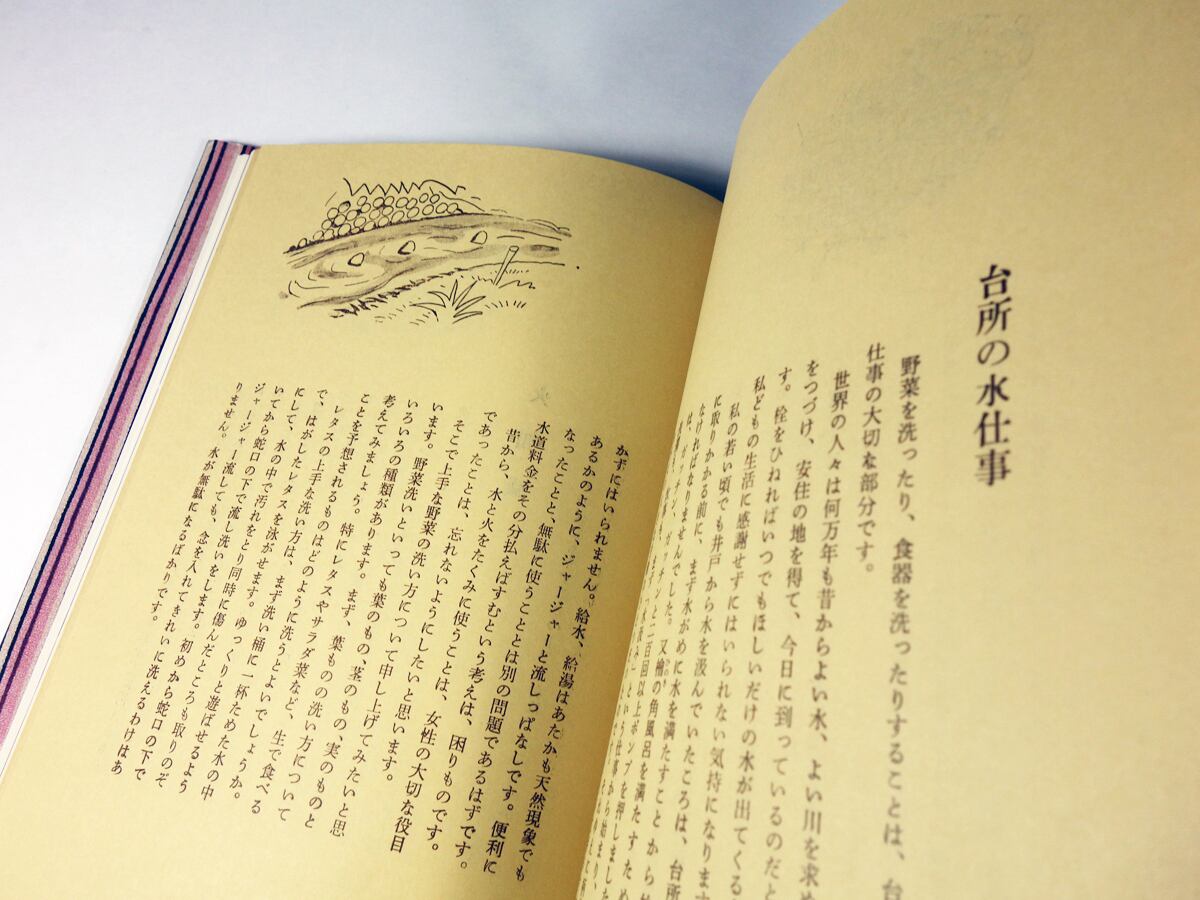 台所の水仕事
野菜を洗ったり、食器を洗ったりすることは、台
仕事の大切な部分です。
世界の人々は何万年も昔からよい水、よい川を求め
をつづけ、安住の地を得て、今日に到っているのだと
す。栓をひねればいつでもほしいだけの水が出てくる
私どもの生活に感謝せずにはいられない気持になります
私の若い頃でも井戸から水を汲んでいたころは、台所
に取りかかる前に、まず水がめに水を満たすことから
なければなりませんでした。又檜の角風呂を満たすため
は、ガッチン、ガッチンと二百回以上ポンプを押しました
という仕事から始まり、
かずにはいられません。給水、給湯はあたかも天然現象でも
あるかのように、ジャージャーと流しっぱなしです。便利に
なったことと、無駄に使うこととは別の問題であるはずです。
水道料金をその分払えばすむという考えは、困りものです。
昔から、水と火をたくみに使うことは、女性の大切な役目
であったことは、忘れないようにしたいと思います。
そこで上手な野菜の洗い方について申し上げてみたいと思
います。野菜洗いといっても葉のもの、茎のもの、実のものと
いろいろの種類があります。まず、葉ものの洗い方について
考えてみましょう。特にレタスやサラダ菜など、生で食べる
ことを予想されるものはどのように洗うとよいでしょうか。
レタスの上手な洗い方は、まず洗い桶に一杯ためた水の中
で、はがしたレタスを泳がせます。ゆっくりと遊ばせるよう
にして、水の中で汚れをとり同時に傷んだところも取りのぞ
いてから蛇口の下で流し洗いをします。初めから蛇口の下で
ジャージャー流しても、念を入れてきれいに洗えるわけはあ
りません。水が無駄になるばかりです。